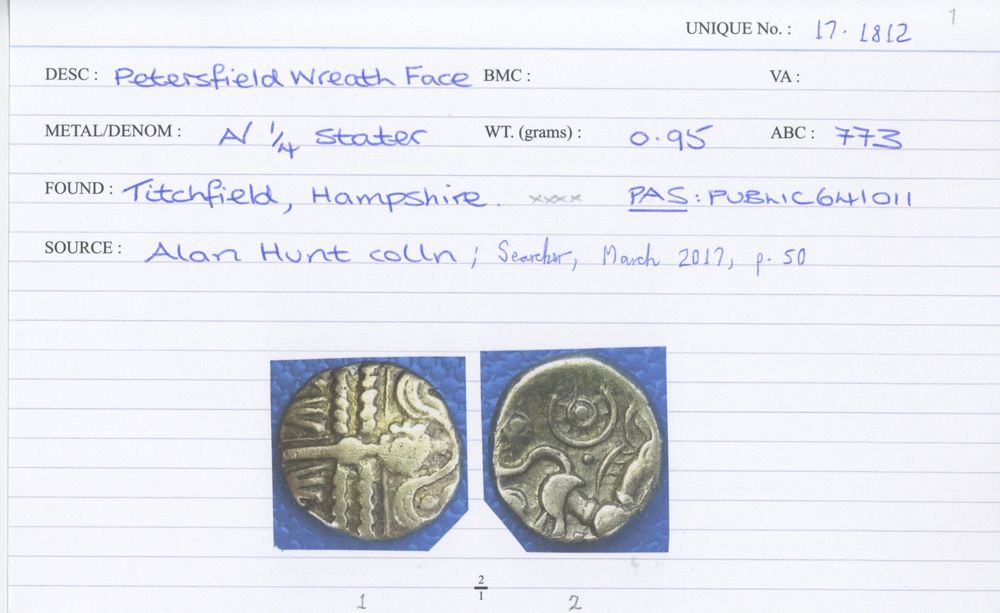 1
UNIQUE No. : 17. 1812
DESC : Petersfield Wreath Face BMC : VA :
METAL/DENOM : A/ 1/4 Stater WT. (grams) : 0.95 ABC : 773
FOUND : Titchfield, Hampshire. xxxx PAS: PUBLIC641011
SOURCE : Alan Hunt colln ; Searcher, March 2017, p. 50
2/1
1 2